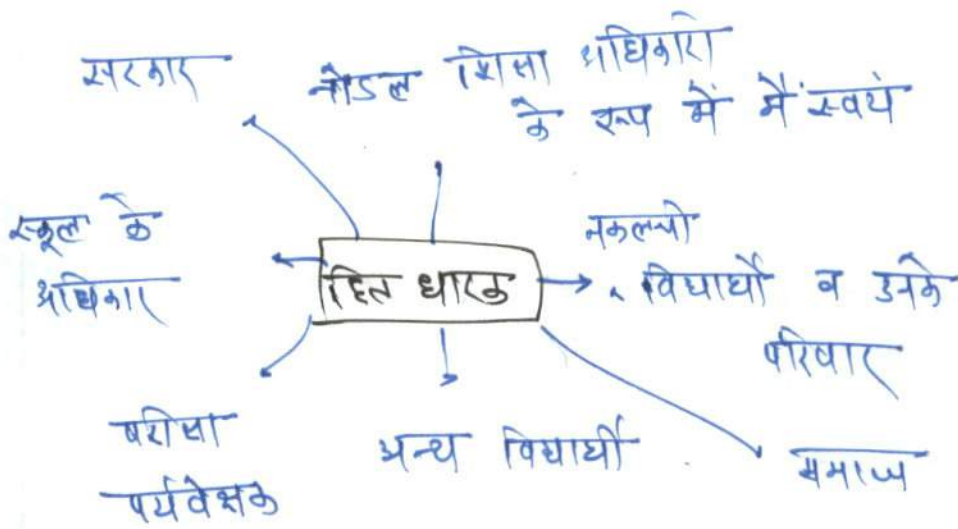 सरकार
नोडल शिक्षा अधिकारी
के रूप में मैं स्वयं
स्कूल के
अधिकार
हित धारक
नकलची
विद्यार्थी व उनके
परिवार
परीक्षा
पर्यवेक्षक
अन्य विद्यार्थी
समाज